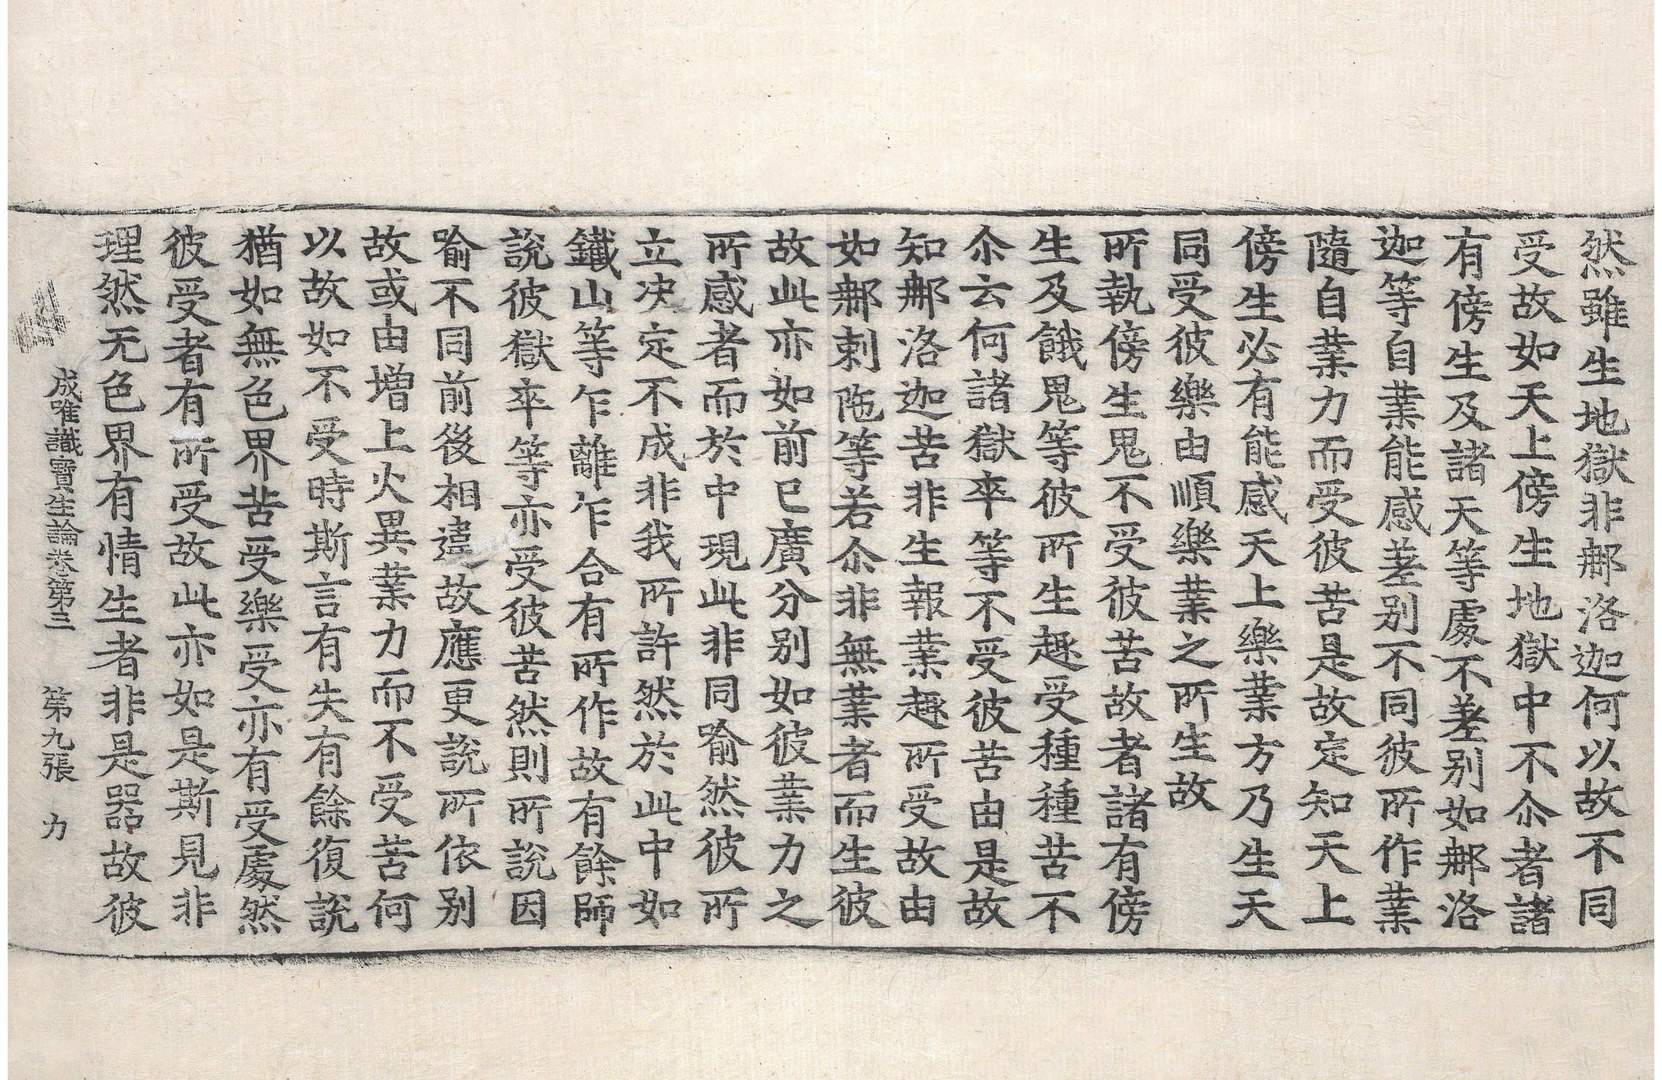 然雖生地獄非郍洛迦何以故不同
受故如天上傍生地獄中不尒者諸
有傍生及諸天等處不差別如郍洛
迦等自業能感差別不同彼所作業
隨自業力而受彼苦是故定知天上
傍生必有能感天上樂業方乃生天
同受彼樂由順樂業之所生故
所執傍生鬼不受彼苦故者諸有傍
生及餓鬼等彼所生趣受種種苦不
尒云何諸獄卒等不受彼苦由是故
知郍洛迦苦非生報業趣所受故由
如郍剌陁等若尒非無業者而生彼
故此亦如前已廣分別如彼業力之
所感者而於中現此非同喻然彼所
立决定不成非我所許然於此中如
鐵山等乍離乍合有所作故有餘師
說彼獄卒等亦受彼苦然則所說因
喻不同前後相違故應更說所依別
故或由增上火異業力而不受苦何
以故如不受時斯言有失有餘復說
猶如無色界苦受樂受亦有受處然
彼受者有所受故此亦如是斯見非
理然无色界有情生者非是器故彼
成唯識寶生論卷第三　第九張　力